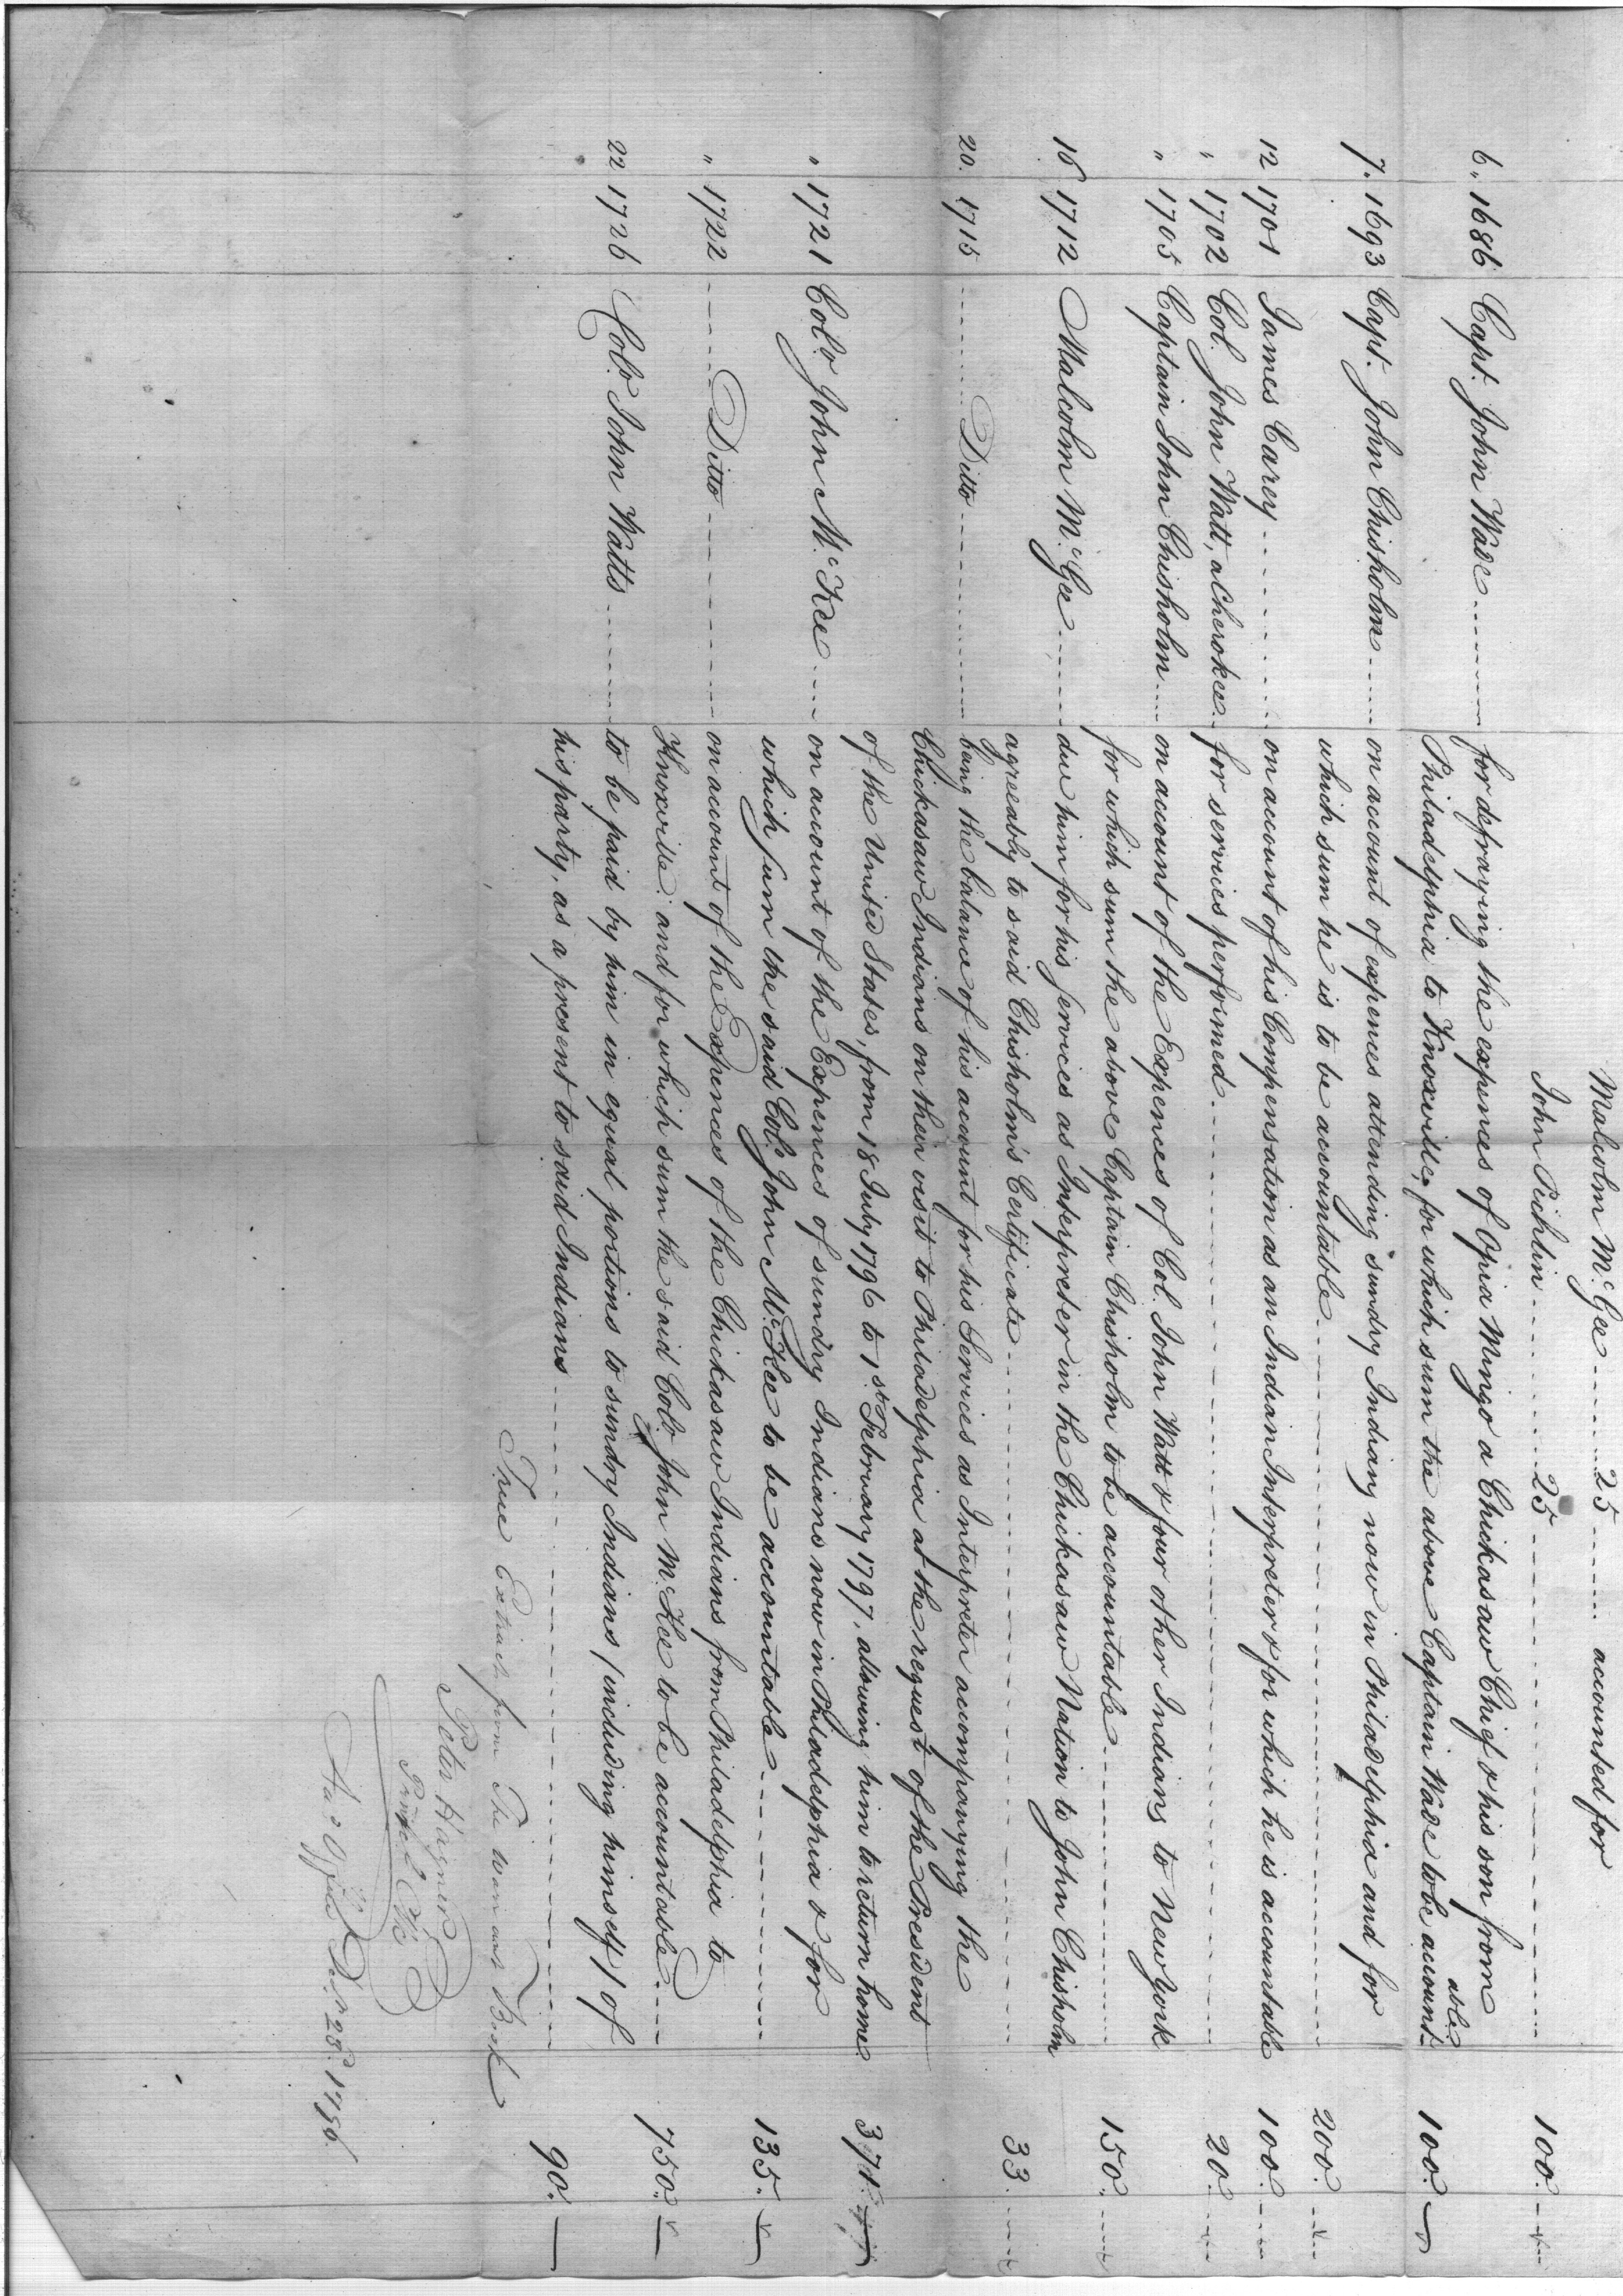 Malcolm McGee ........ 25 ........ accounted for
John Pichlin ........ 25 ........ 100.
6. 1686 Capt. John Wade ........ for defraying the expences of Opia Mingo a Chickasaw Chief & his son from
Philadelphia to Knoxville, for which sum the above Captain Wade to be accountable 100.
7. 1693 Capt. John Chisholm ........ on account of expences attending sundry Indians now in Philadelphia and for
which sum he is to be accountable ........ 200.
12 1701 James Carey ........ on account of his Compensation as an Indian Interpreter & for which he is accountable 100.
" 1702 Col. John Watt, a Cherokee for services performed ........ 20.
" 1705 Captain John Chisholm ........ on account of the Expences of Col. John Watt & four other Indians to New York
for which sum the above Captain Chisholm to be accountable ........ 150.
16 1712 Malcolm McGee ........ due him for his services as Interpreter in the Chickasaw Nation to John Chisholm
agreeably to said Chisholm's Certificate ........ 33.
20. 1715 ........ Ditto ........ being the balance of his account for his Services as Interpreter accompanying the
Chickasaw Indians on their visit to Philadelphia at the request of the President
of the United States, from 18 July 1796 to 1st February 1797, allowing him to return home
" 1721 Colo. John McKee ........ on account of the Expences of sundry Indians now in Philadelphia & for
which sum the said Colo. John McKee to be accountable ........ 135.
" 1722 ........ Ditto ........ on account of the Expences of the Chickasaw Indians from Philadelphia to
Knoxville: and for which sum the said Colo. John McKee to be accountable ........ 750.
22 1726 Colo. John Watts ........ to be paid by him in equal portions to sundry Indians (including himself) of
his party, as a present to said Indians ........ 90.
True Extract from The warrant Book
Peter Hagner
Princl. Clk
Acc. Office Decr. 28. 1796